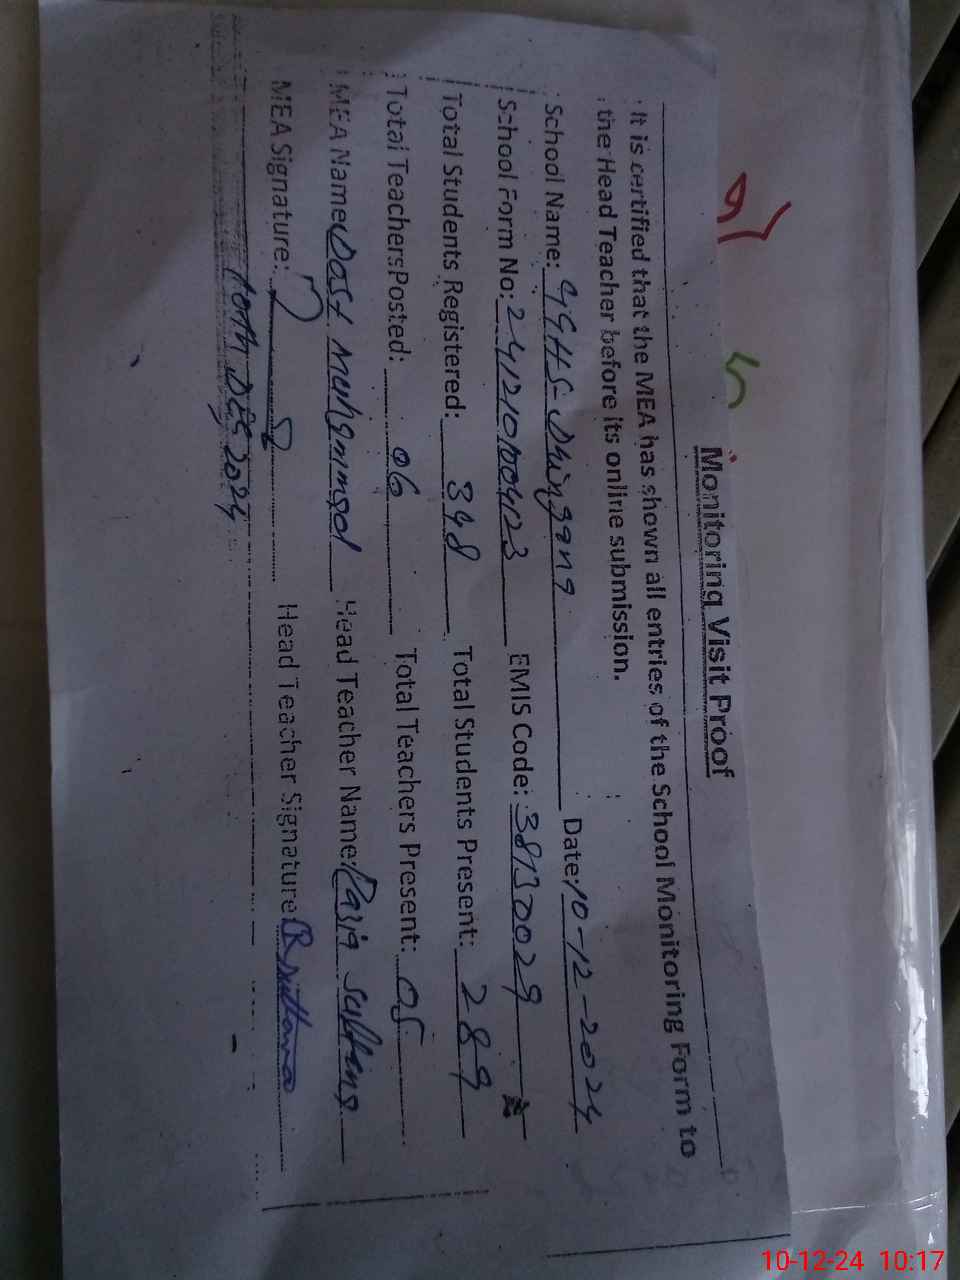 Monitoring Visit Proof
It is certified that the MEA has shown all entries of the School Monitoring Form to
the Head Teacher before its online submission.
School Name: GGHS Dhingana Date: 10-12-2024
School Form No: 2412101004123 EMIS Code: 38130029
Total Students Registered: 348 Total Students Present: 289
Total Teachers Posted: 06 Total Teachers Present: 05
MEA Name: Dost Muhammad Head Teacher Name: Razia Sultana
MEA Signature: Head Teacher Signature
10th Dec 2024
10-12-24 10:17